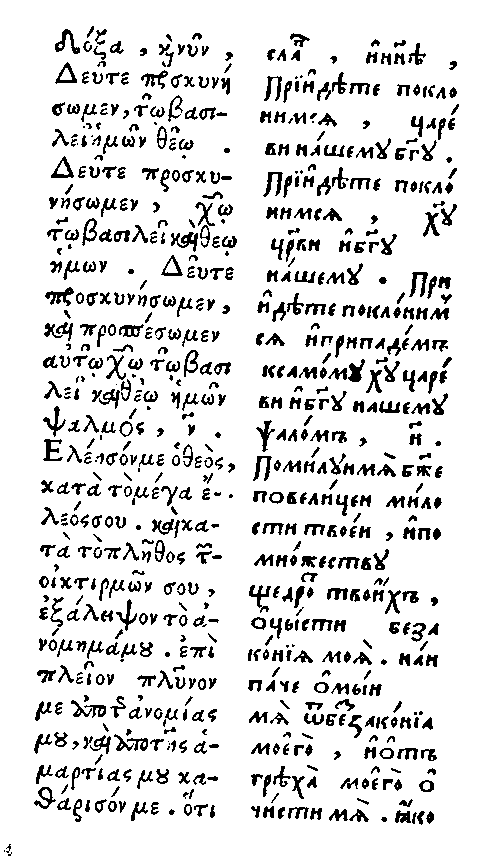 Δόξα , κ̀ νῦν ,
Δεῦτε προσκυνή
σωμεν, τῷ βασι-
λεῖ ἡμῶν θεῷ .
Δεῦτε προσκυ-
νήσωμεν , χ͠ῷ
τῷ βασιλεῖ καὶ θεῷ
ἡμων . Δεῦτε
προσκυνήσωμεν,
καὶ προπέσωμεν
αὐτῷ χ͠ῷ τῷ βασι
λεῖ καὶ θεῷ ἡμῶν
Ψαλμός , ν͠ .
Ελέησόν με ὁ θεὸς,
κατὰ τὸ μέγα ἔ-
λεός σου . καὶ κα-
τὰ τὸ πλῆθος τ͠-
οἰκτιρμῶν σου ,
ἐξάλειψον τὸ ἀ-
νόμημά μȣ . ἐπὶ
πλεῖον πλῦνον
με ἀπὸ τ͠ ἀνομίας
μȣ, καὶ ἀπὸ τῆς ἁ-
μαρτίας μȣ κα-
θάρισόν με . ὅτι
сла҃ , и҆ нн҃ѣ ,
Прїи҆дѣте покло
нимсѧ , царе́
ви на́шемꙋ бг҃ꙋ .
Прїи҆дѣте покло́
нимсѧ , хꙋ҃
цр҃ви и҆ бг҃ꙋ
на́шемꙋ . При
и҆дѣте покло́ним
сѧ и҆ припаде́мъ
к само́мꙋ хꙋ҃ царе́
ви и҆ бг҃ꙋ нашемꙋ
Ѱало́мъ , н҃ .
Поми́лꙋи мѧ̀ бж҃е
по вели́цеи мило
сти твое́и , и҆ по
мно́жествꙋ
щедро́ твои́хъ ,
ѡ҆чы́сти беза
ко́нїѧ моѧ̀ . наи
па́че ѡ҆мы́и
мѧ̀ ѿ безако́нїа
моего̀ , и҆ ѻ҆тъ
грѣха̀ моего̀ ѡ҆
чи́сти мѧ . ꙗ҆ко
4